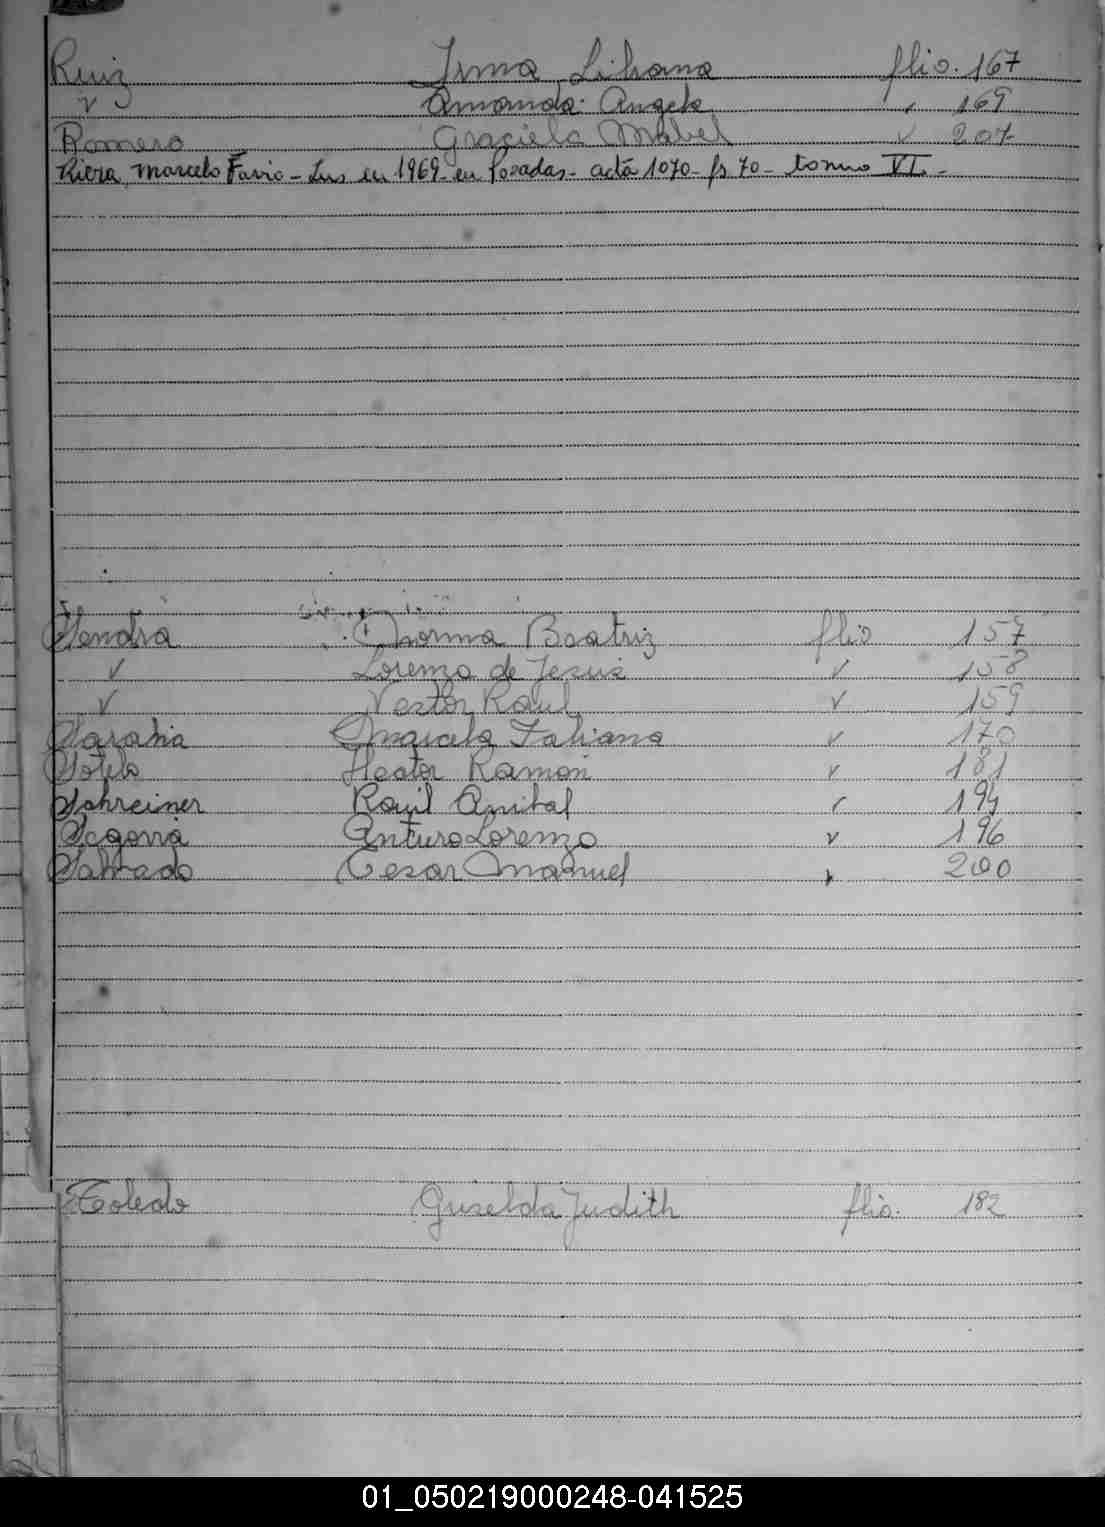 Ruiz Irma Liliana flio. 167
v Amanda Angela " 169
Romero Graciela Mabel v 207
Riera, Marcelo Favio - Ins en 1969 - en Posadas - acta 1070 - fs 70 - tomo VI -
Sendra Norma Beatriz flio 157
v Lorenzo de Jesus v 158
v Nestor Raul v 159
Sarabia Marcela Fabiana v 170
Sotelo Hector Ramon v 181
Schreiner Raul Anibal v 194
Segovia Arturo Lorenzo v 196
Salcedo Cesar Manuel 200
Toledo Griselda Judith flio. 182
01_050219000248-041525